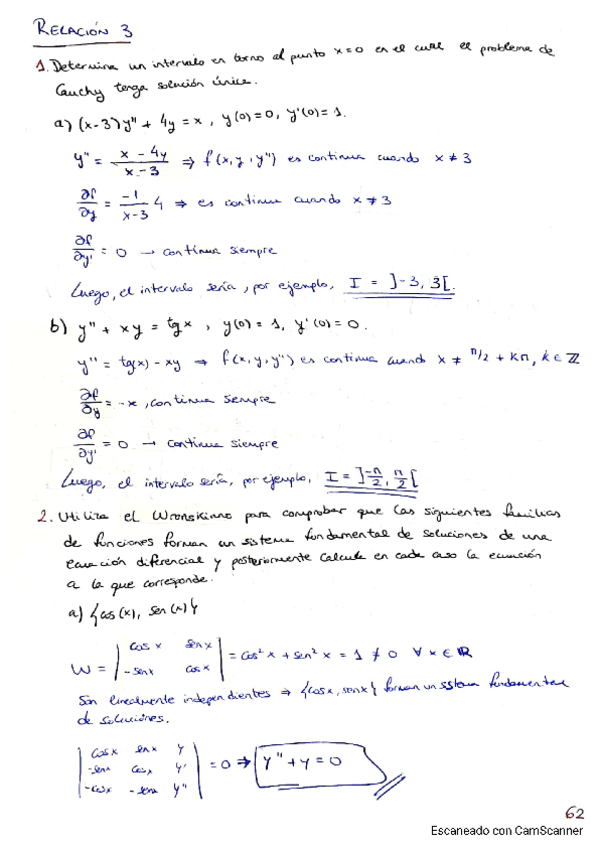 RELACIÓN 3
1. Determina un intervalo en torno al punto x=0 en el cual el problema de
Cauchy tenga solución única.
a) (x-3)y'' + 4y = x, y(0)=0, y'(0)=1.
y'' = (x - 4y)/(x - 3) ⇒ f(x,y,y'') es continua cuando x ≠ 3
∂f/∂y = -1/(x-3) 4 ⇒ es continua cuando x ≠ 3
∂f/∂y' = 0 → continua siempre
Luego, el intervalo sería, por ejemplo, I = ]-3, 3[.
b) y'' + xy = tgx, y(0)=1, y'(0)=0.
y'' = tg(x) - xy ⇒ f(x,y,y'') es continua cuando x ≠ π/2 + kπ, k∈ℤ
∂f/∂y = -x, continua siempre
∂f/∂y' = 0 → continua siempre
Luego, el intervalo sería, por ejemplo, I = ]-π/2, π/2[
2. Utiliza el Wronskiano para comprobar que las siguientes familias
de funciones forman un sistema fundamental de soluciones de una
ecuación diferencial y posteriormente calcule en cada caso la ecuación
a la que corresponde.
a) {cos(x), sen(x)}
W = | cosx senx |
| -senx cosx | = cos²x + sen²x = 1 ≠ 0 ∀x∈ℝ
Son linealmente independientes ⇒ {cosx, senx} forman un sistema fundamental
de soluciones.
| cosx senx y |
| -senx cosx y' | = 0 ⇒ y'' + y = 0
| -cosx -senx y'' |
62
Escaneado con CamScanner